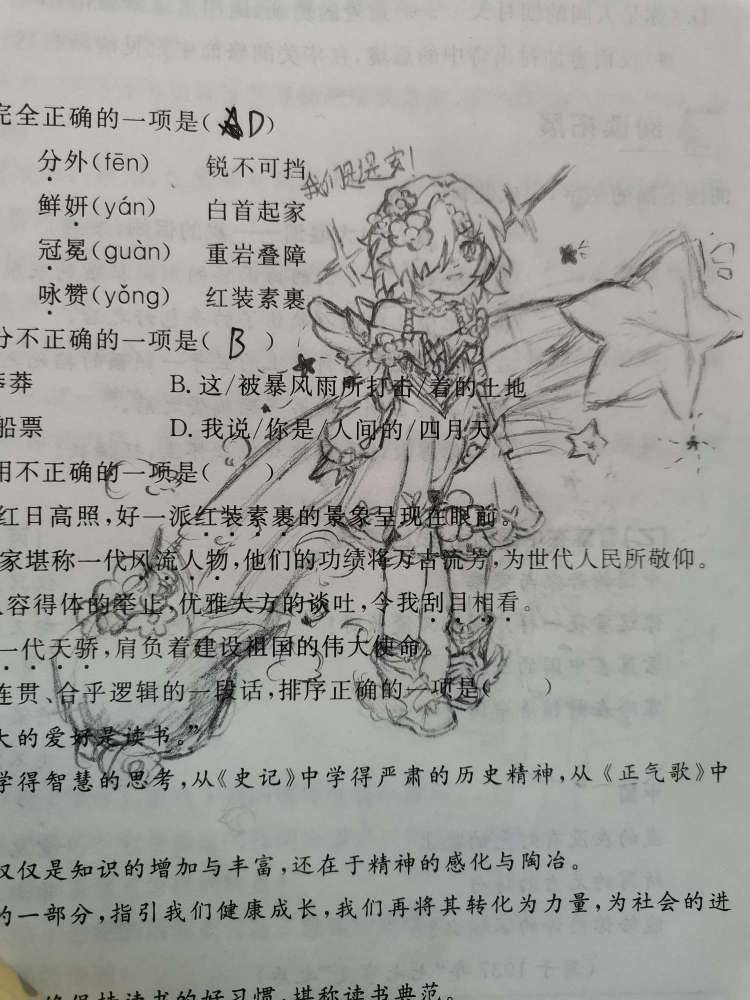 完全正确的一项是(AD)
分外(fēn) 锐不可挡
鲜妍(yán) 白首起家
冠冕(guàn) 重岩叠障
咏赞(yǒng) 红装素裹
我们是
分不正确的一项是( B )
莽 B. 这/被暴风雨所打击/着的土地
船票 D. 我说/你是/人间的/四月天
用不正确的一项是( )
红日高照,好一派红装素裹的景象呈现在眼前。
家堪称一代风流人物,他们的功绩将万古流芳,为世代人民所敬仰。
容得体的举止,优雅大方的谈吐,令我刮目相看。
一代天骄,肩负着建设祖国的伟大使命。
连贯、合乎逻辑的一段话,排序正确的一项是( )
大的爱好是读书。”
学得智慧的思考,从《史记》中学得严肃的历史精神,从《正气歌》中
仅仅是知识的增加与丰富,还在于精神的感化与陶冶。
的一部分,指引我们健康成长,我们再将其转化为力量,为社会的进
终保持读书的好习惯,堪称读书典范。